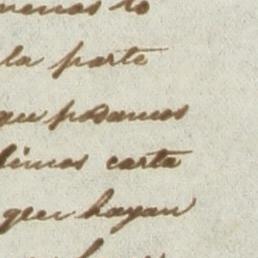 menos lo
la parte
que podamos
dimos carta
que hayan